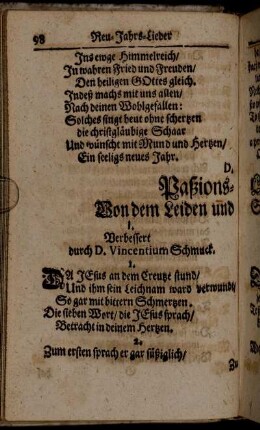 98 Neu-Jahrs-Lieder
Ins ewge Himmelreich/
In wahren Fried und Freuden/
Den heiligen GOttes gleich.
Indeß machs mit uns allen/
Nach deinen Wohlgefallen:
Solches singt heut ohne schertzen
die christgläubige Schaar
Und wünscht mit Mund und Hertzen/
Ein seeligs neues Jahr.
D.
Paßions-
Von dem Leiden und
1.
Verbessert
durch D. Vincentium Schmuck.
1.
DA JEsus an dem Creutze stund/
Und ihm sein Leichnam ward verwundt/
So gar mit bittern Schmertzen.
Die sieben Wort/ die JEsus sprach/
Betracht in deinem Hertzen.
2.
Zum ersten sprach er gar süßiglich/
Zu